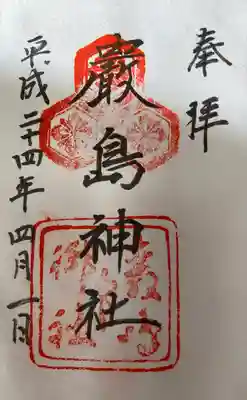 奉拝
厳島神社
平成二十四年四月一日